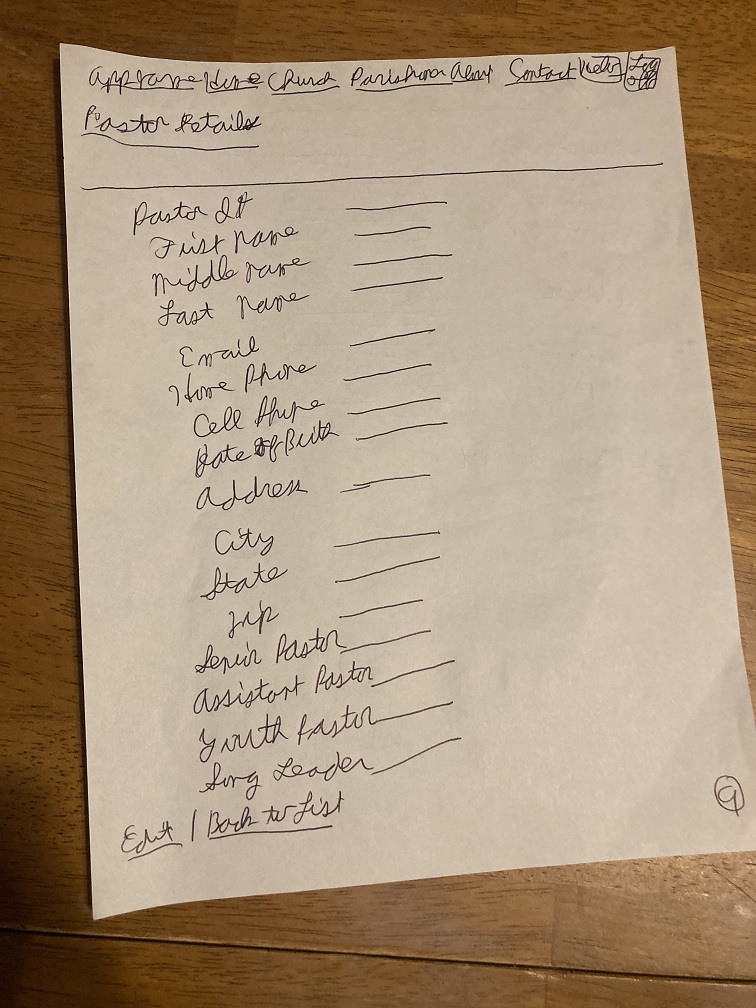 App name Home Church Parishioner About Contact Hello Log off
Pastor Details
Pastor Id
First Name
Middle name
Last Name
Email
Home Phone
Cell Phone
Date of Birth
Address
City
State
Zip
Senior Pastor
Assistant Pastor
Youth Pastor
Song Leader
Edit | Back to List
9